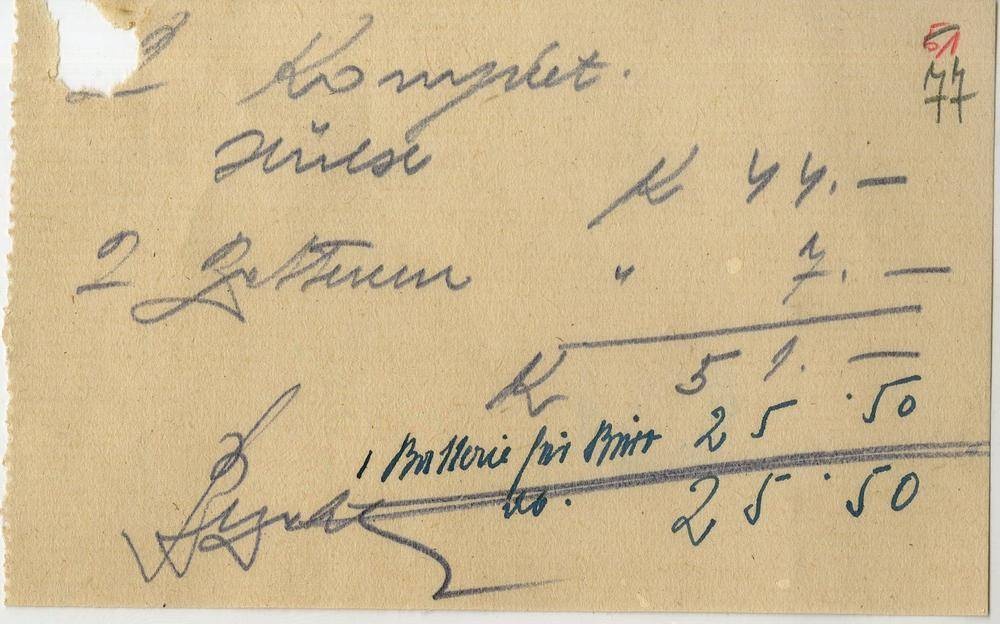 51
77
2 Komplet.
Hülse K 44.—
2 Batterien " 7.—
K 51.—
1 Batterie für Büro 25.50
ab. 25.50